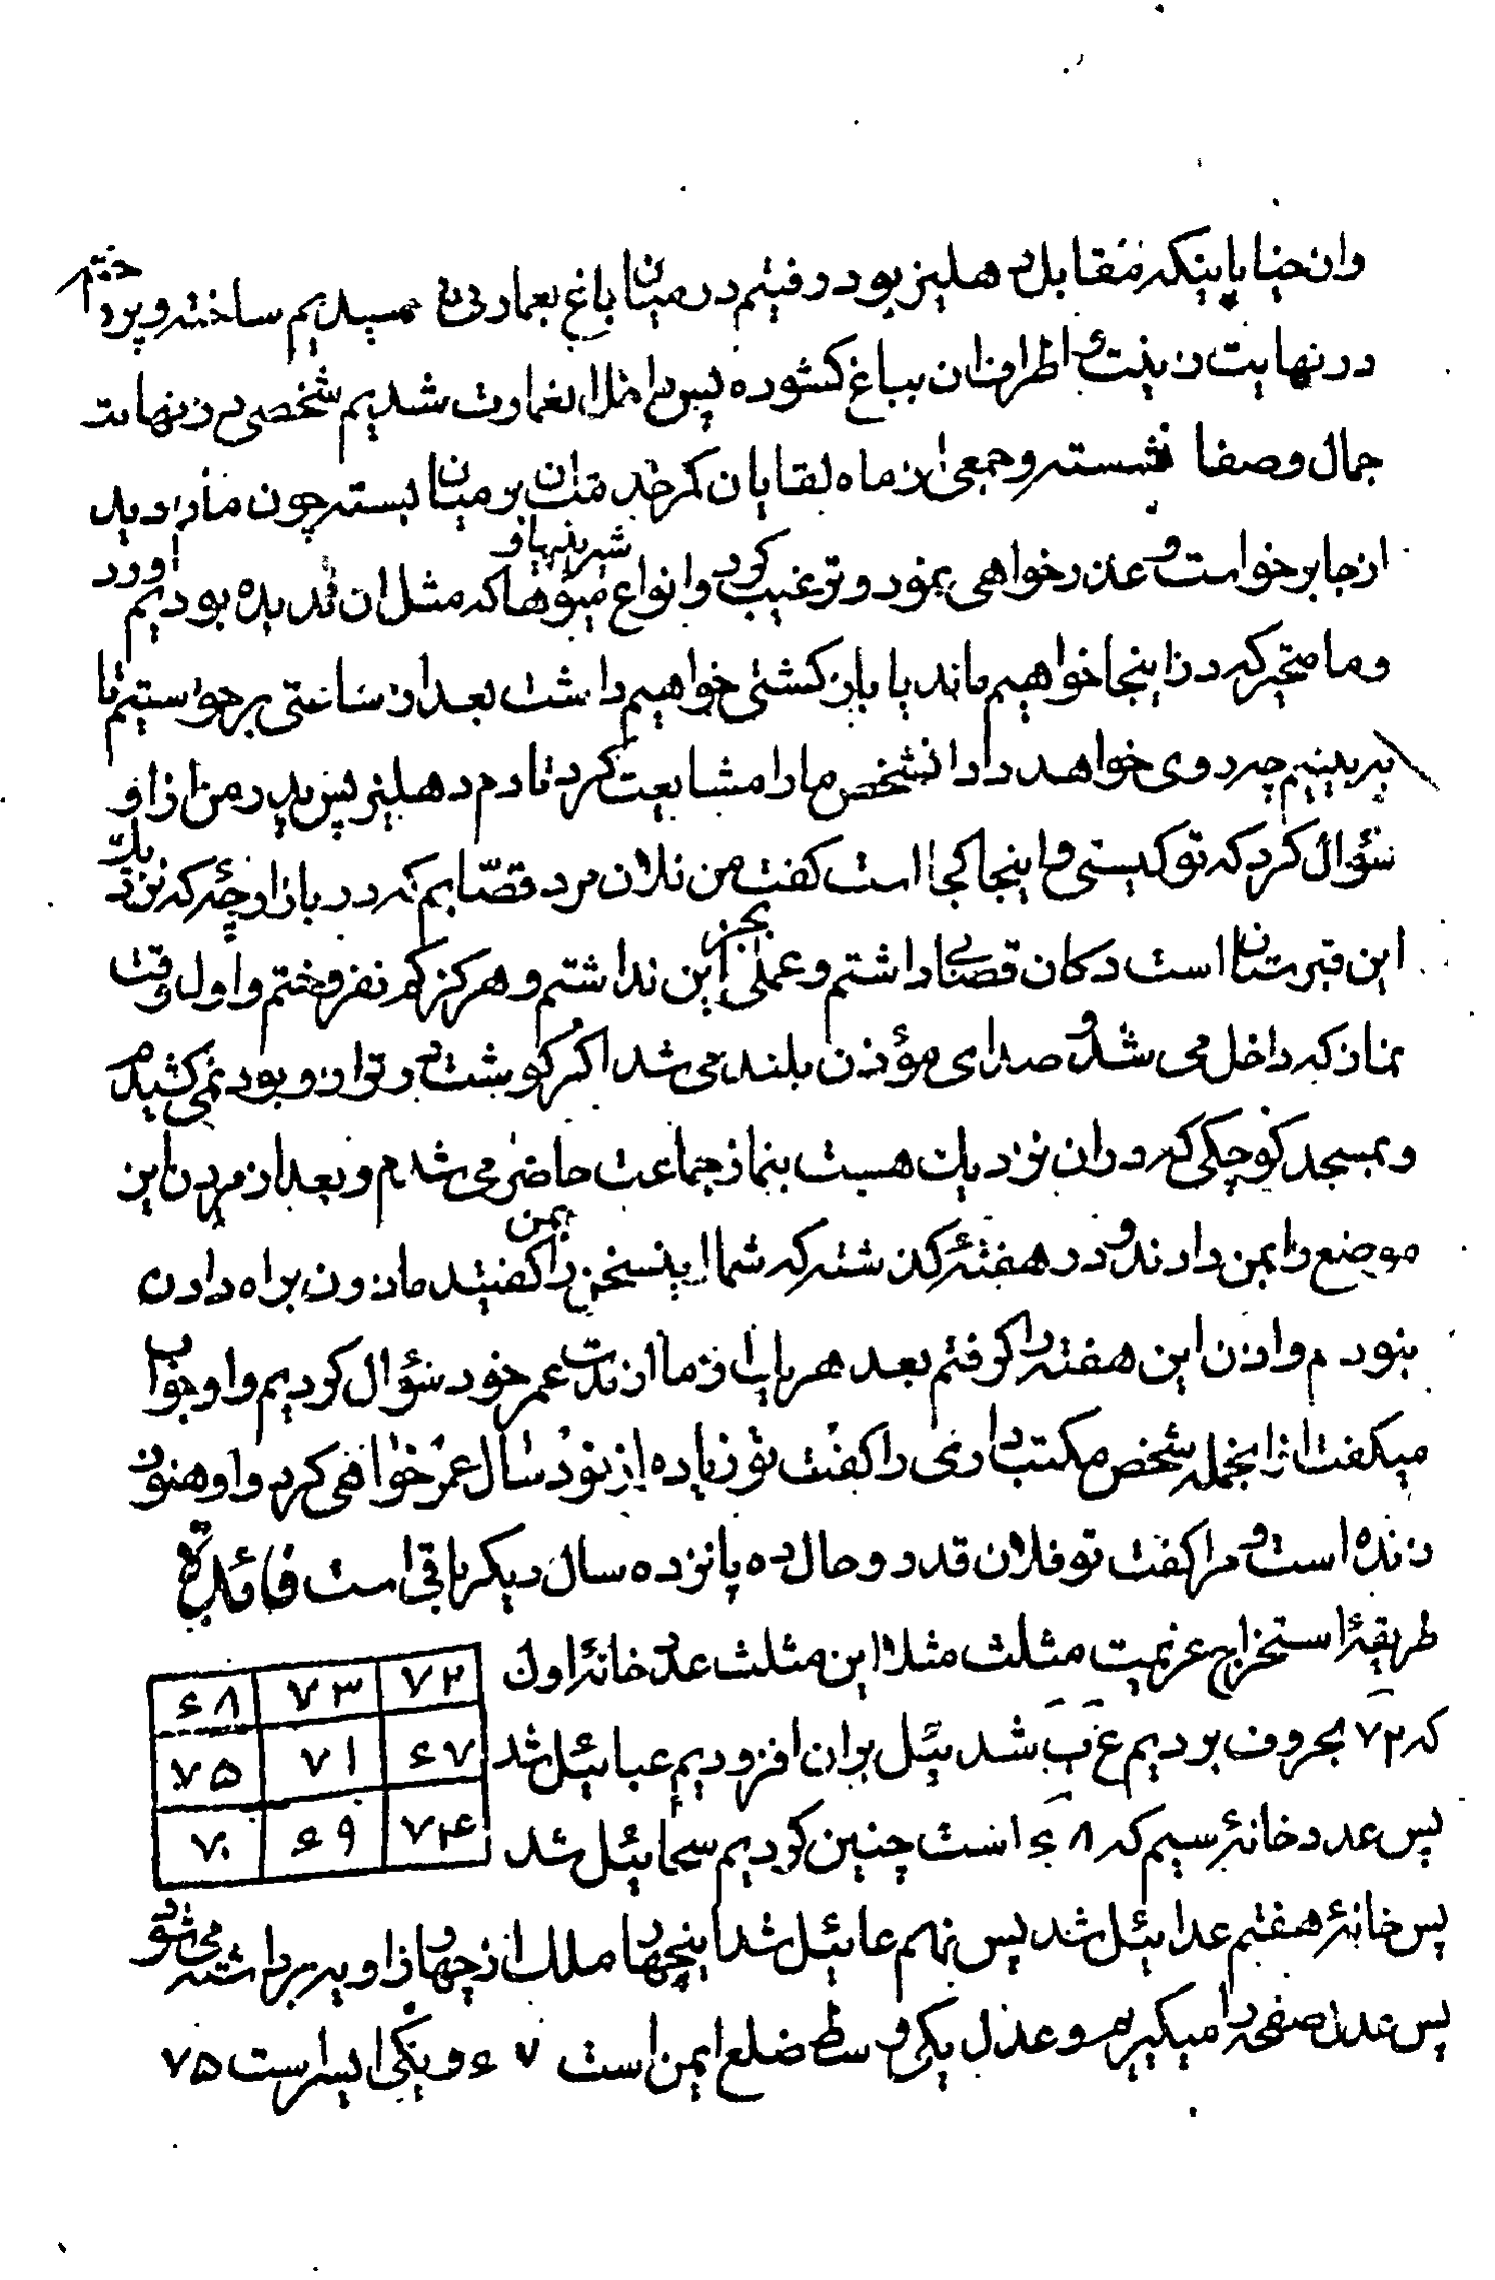 وان خیابانیکه مقابل دهلیز بود رفتیم در میان باغ بعمارتی رسیدیم ساخته و پرداخته
در نهایت زینت و اطراف ان بباغ کشوده پس داخل انعمارت شدیم شخصی در نهایت
جمال و صفا نشسته و جمعی از ماه لقایان کمر خدمتش بر میان بسته چون ما را دید
از جا برخواست و عذرخواهی نمود و ترغیب کرد و انواع شیرینیها و میوها که مثل ان ندیده بودیم اورد
و ما متحیر که در اینجا خواهیم ماند یا باز کشتی خواهیم داشت بعد از ساعتی برخواستیم تا
به بینیم چه روی خواهد داد انشخص ما را مشایعت کرد تا دم دهلیز پس پدر من از او
سؤال کرد که تو کیستی و اینجا کجا است کفت من فلان مرد قصّابم که در بازارچۀ که نزدیک
این قبرستان است دکان قصابی داشتم و عملی بجز این نداشتم و هرکز کم نفروختم و اول وقت
نماز که داخل می شد و صدای مؤذن بلند می شد اکر کوشت در ترازو بود نمی کشیدم
و بمسجد کوچکی که در ان نزدیک هست بنماز جماعت حاضر می شدم و بعد از مردن این
موضع را بمن دادند و در هفتۀ کذشته که شما اینسخن را بمن کفتید ماذون براه دادن
نبودم و اذن این هفته را کرفتم بعد هریک از ما از مدت عمر خود سؤال کردیم و او جواب
میکفت از انجمله شخص مکتب داری را کفت تو زیاده از نود سال عمر خواهی کرد و او هنوز
زنده است و مرا کفت تو فلان قدر و حال ده پانزده سال دیکر باقی است فائدة
طریقۀ استخراج عزیمت مثلث مثلا این مثلث عدد خانۀ اول
که ۷۲ بحروف بردیم ع ب شد ئیل بران افزودیم عبائیل شد
پس عدد خانۀ سیم که ۶۸ است چنین کردیم سحائیل شد
پس خانۀ هفتم عدائیل شد پس نهم عائیل شد اینچهار ملک از چهار زاویه برداشته می شود
پس عدل صفحه را میکیریم و عدل یکی وسط ضلع ایمن است ۶۷ و یکی ایسر است ۷۵
۶۸ ۷۳ ۷۲
۷۵ ۷۱ ۶۷
۷۰ ۶۹ ۷۴